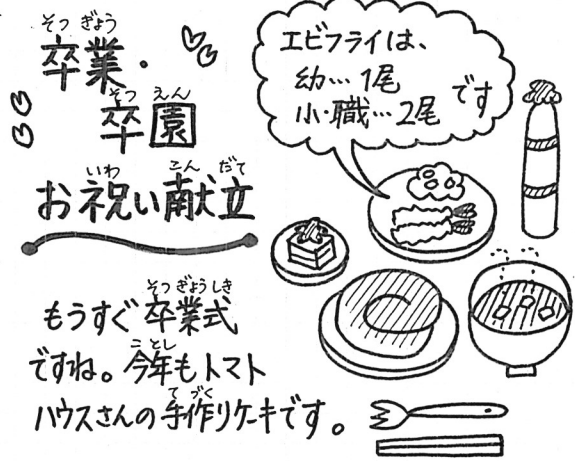 卒業・
卒園
お祝い献立
エビフライは、
幼…1尾
小・職…2尾
です
もうすぐ卒業式
ですね。今年もトマト
ハウスさんの手作りケーキです。